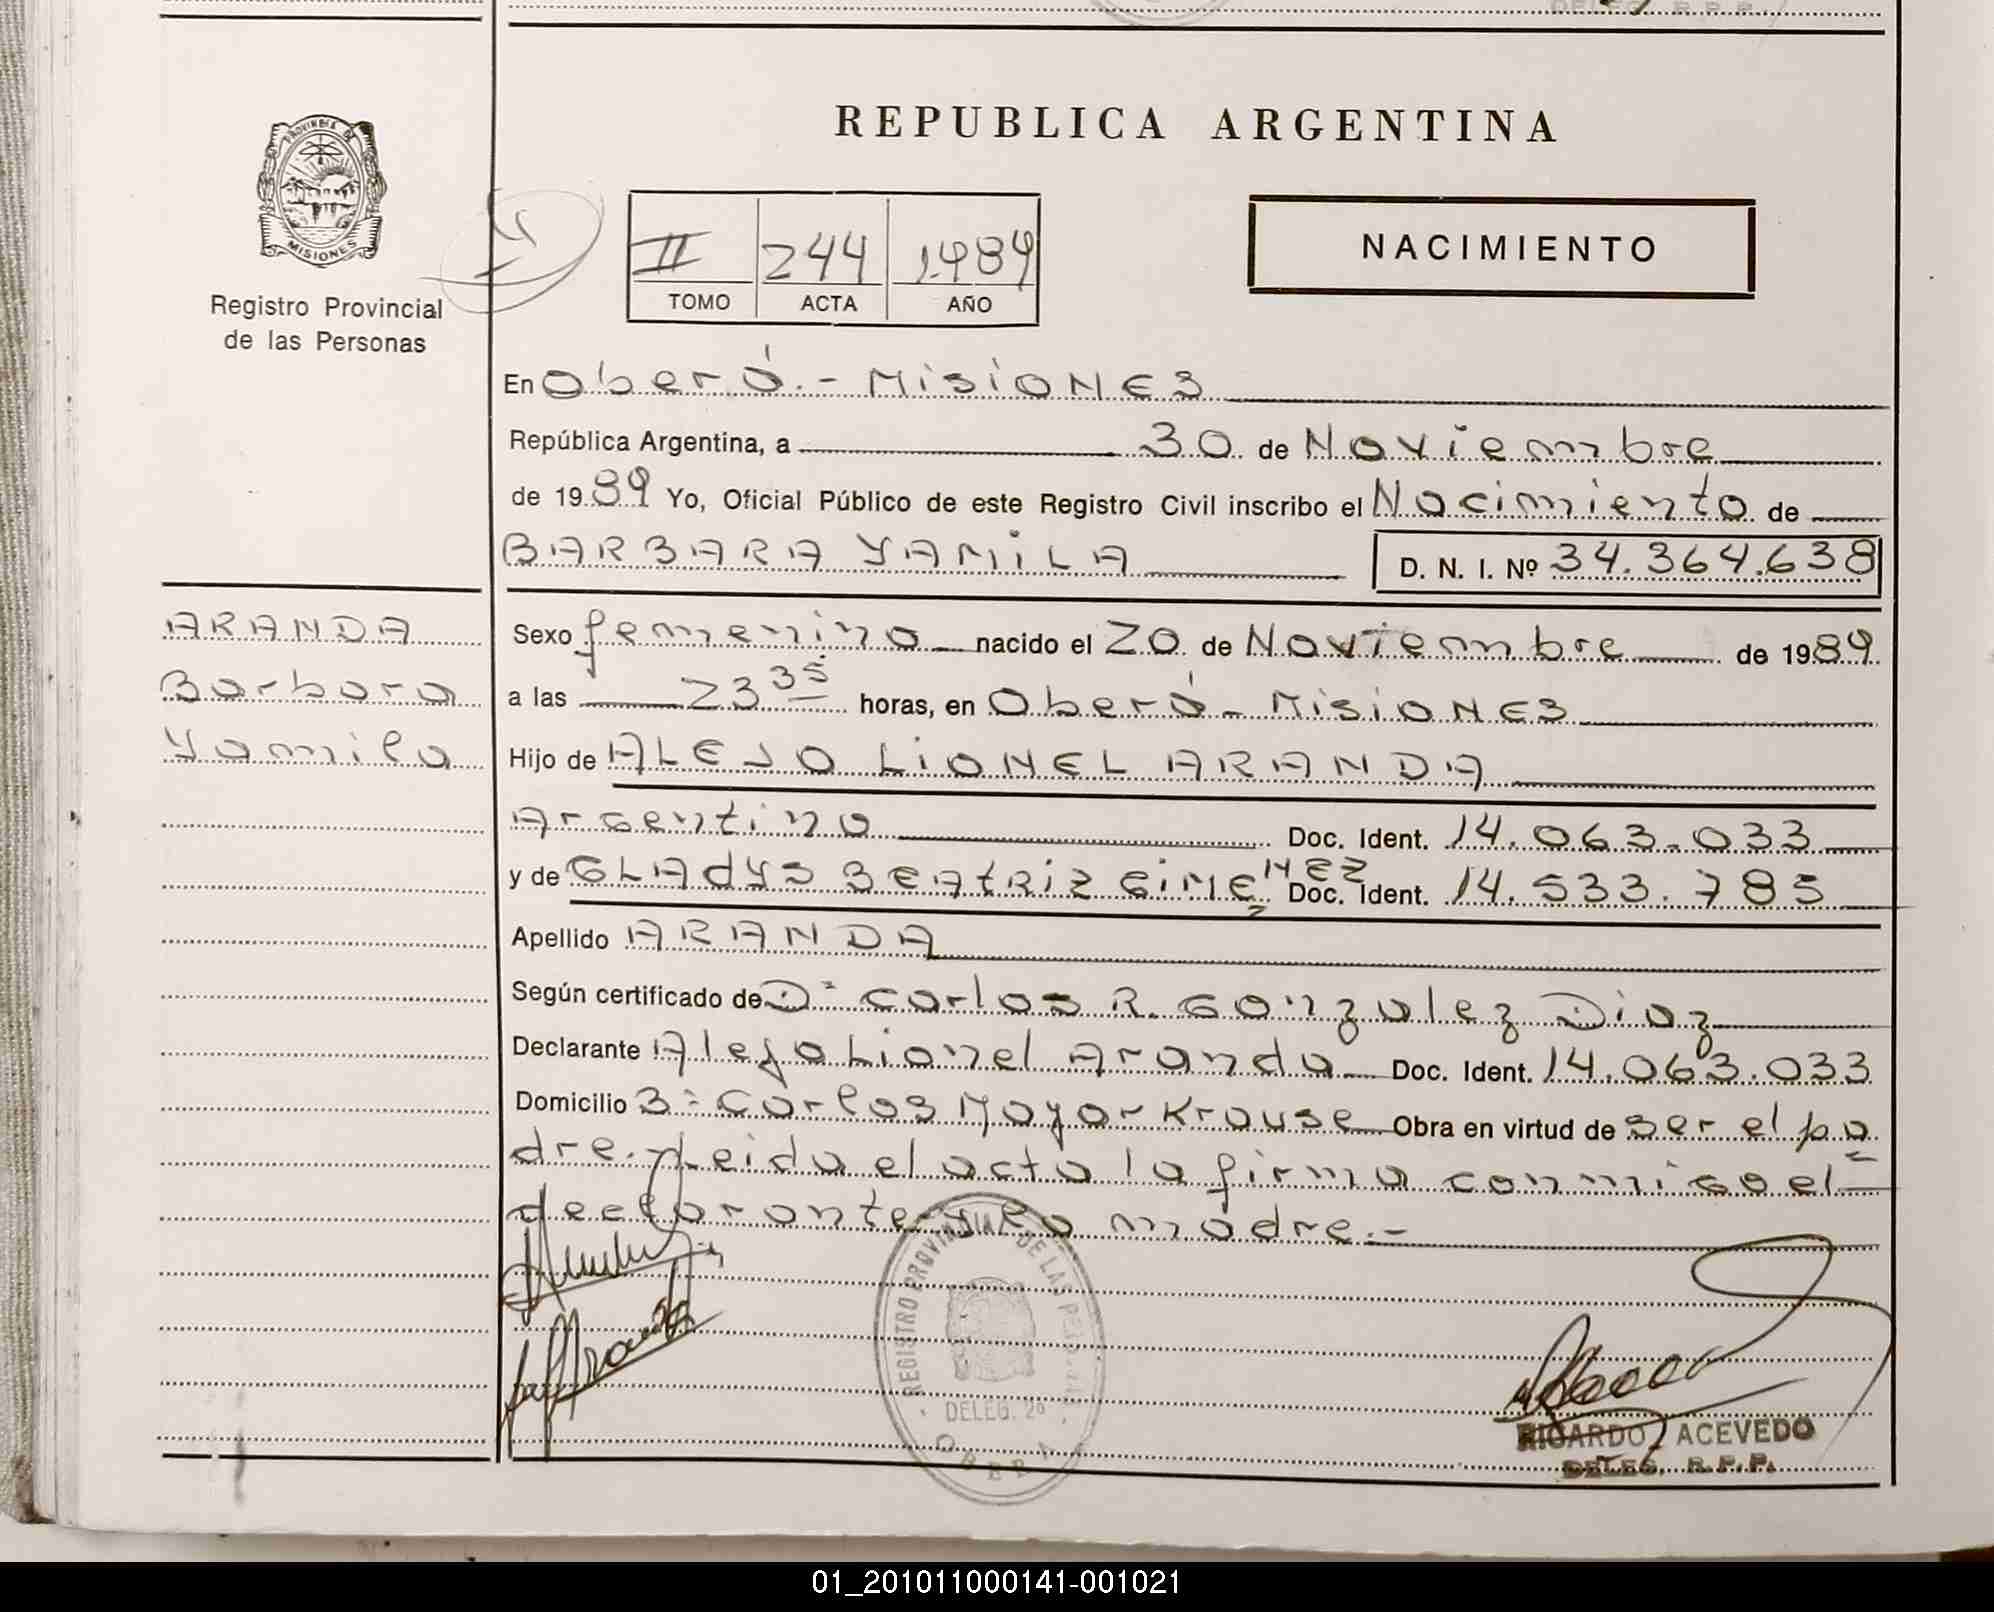 PROVINCIA DE
MISIONES
Registro Provincial
de las Personas
REPUBLICA ARGENTINA
II 244 1989
TOMO ACTA AÑO
NACIMIENTO
En Oberá.- MISIONES
República Argentina, a 30 de Noviembre
de 1989 Yo, Oficial Público de este Registro Civil inscribo el Nacimiento de
BARBARA YAMILA D. N. I. Nº 34.364.638
ARANDA
Barbara
Yamila
Sexo femenino nacido el 20 de Noviembre de 1989
a las 23 35 horas, en Oberá - MISIONES
Hijo de ALEJO LIONEL ARANDA
Argentino Doc. Ident. 14.063.033
y de GLADYS BEATRIZ GIMENEZ Doc. Ident. 14.533.785
Apellido ARANDA
Según certificado de Dº Carlos R. Gonzalez Diaz
Declarante Alejo Lionel Aranda Doc. Ident. 14.063.033
Domicilio Bº Carlos Mayor Krause Obra en virtud de ser el pa
dre. Leida el acta la firma conmigo el
declarante y la madre.-
REGISTRO PROVINCIAL DE LAS PERSONAS
DELEG. 2º
OBERA
RICARDO J ACEVEDO
DELEG. R.P.P.
01_201011000141-001021